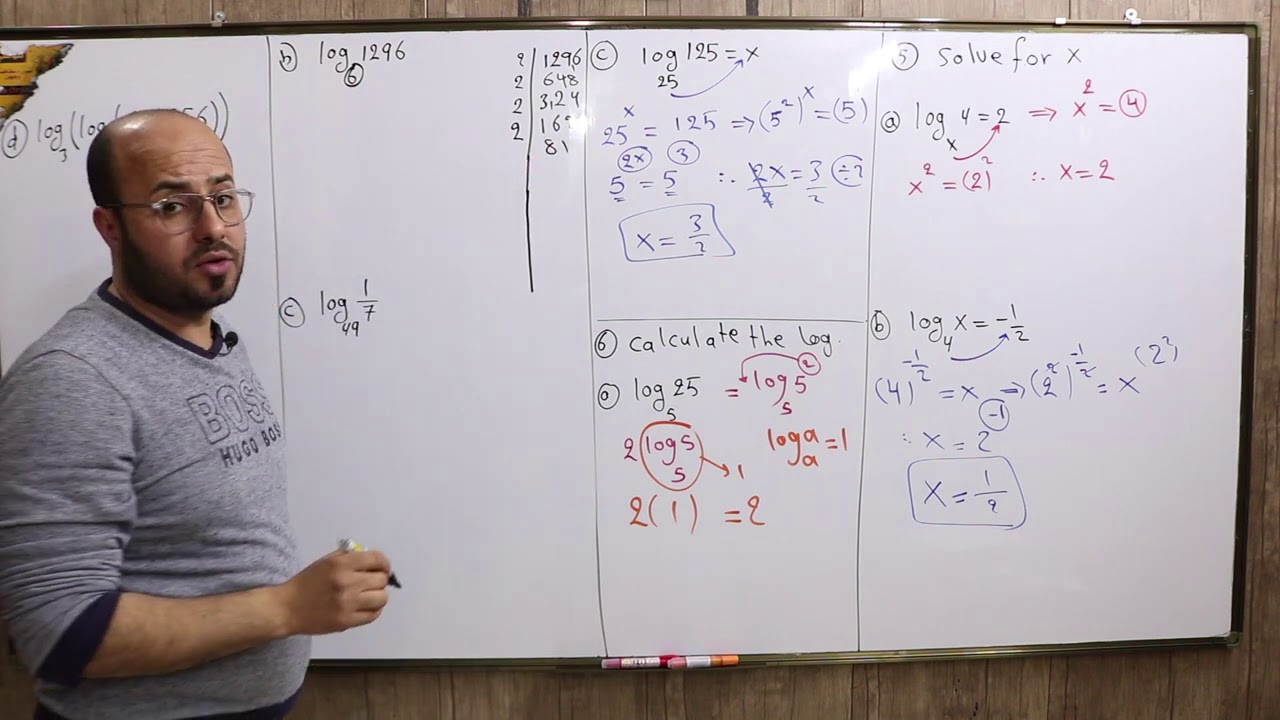 d log₃(log
b log₆ 1296
2 | 1296
2 | 648
2 | 324
2 | 16
81
c log₄₉ 1/7
c log₂₅ 125 = x
25ˣ = 125 ⇒ (5²)ˣ = (5)
5²ˣ = 5³ ∴ 2x/2 = 3/2 ÷2
x = 3/2
6 calculate the log.
a log₅ 25 = log₅ 5²
2 log₅ 5 → 1 logₐ a = 1
2(1) = 2
5 Solve for x
a logₓ 4 = 2 ⇒ x² = 4
x² = (2)² ∴ x = 2
b log₄ x = -1/2
(4)^-1/2 = x ⇒ (2²)^-1/2 = x (2²)
∴ x = 2^-1
x = 1/2
BOSS
HUGO BOSS